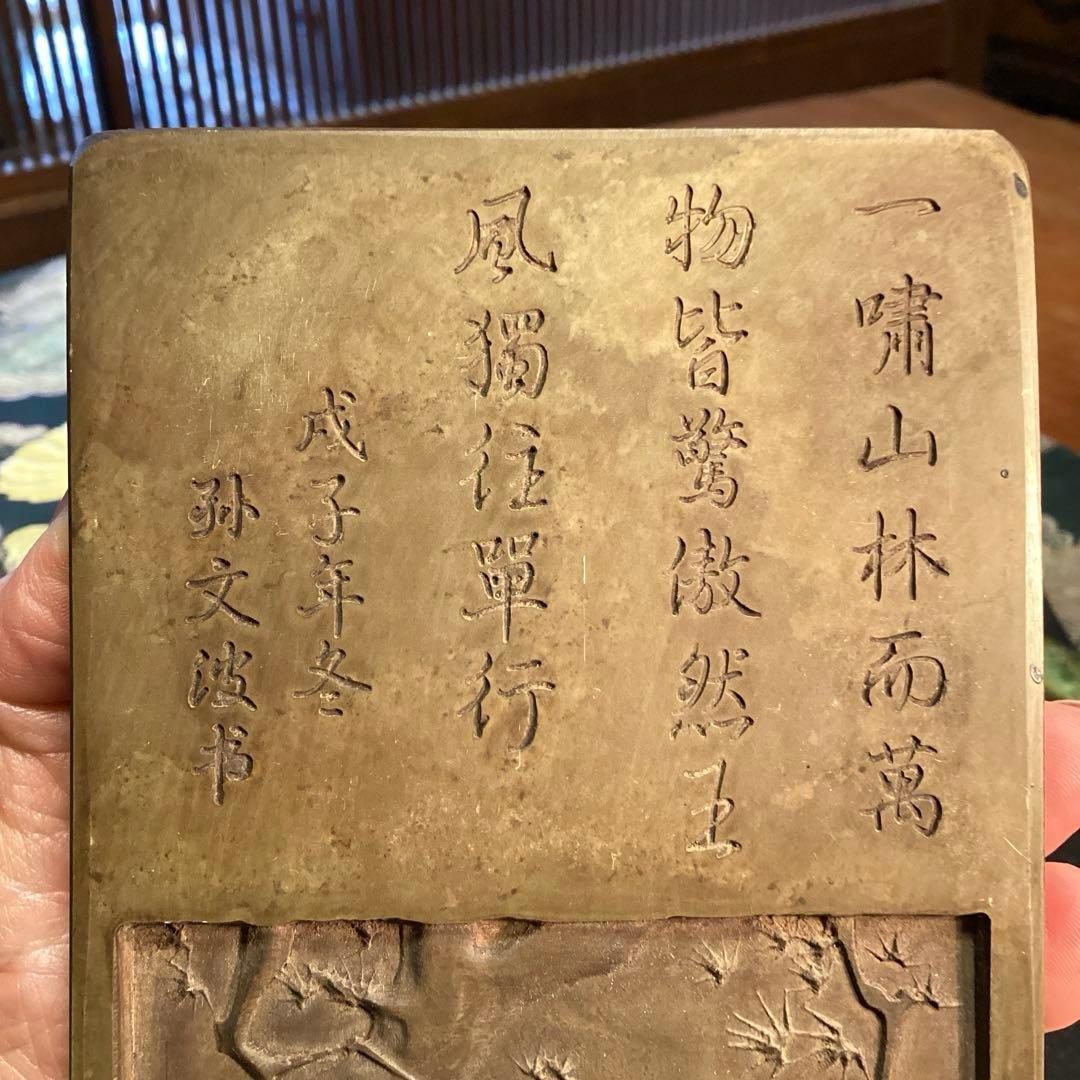 一嘯山林而萬
物皆驚傲然王
風獨往單行
戊子年冬
孙文波书